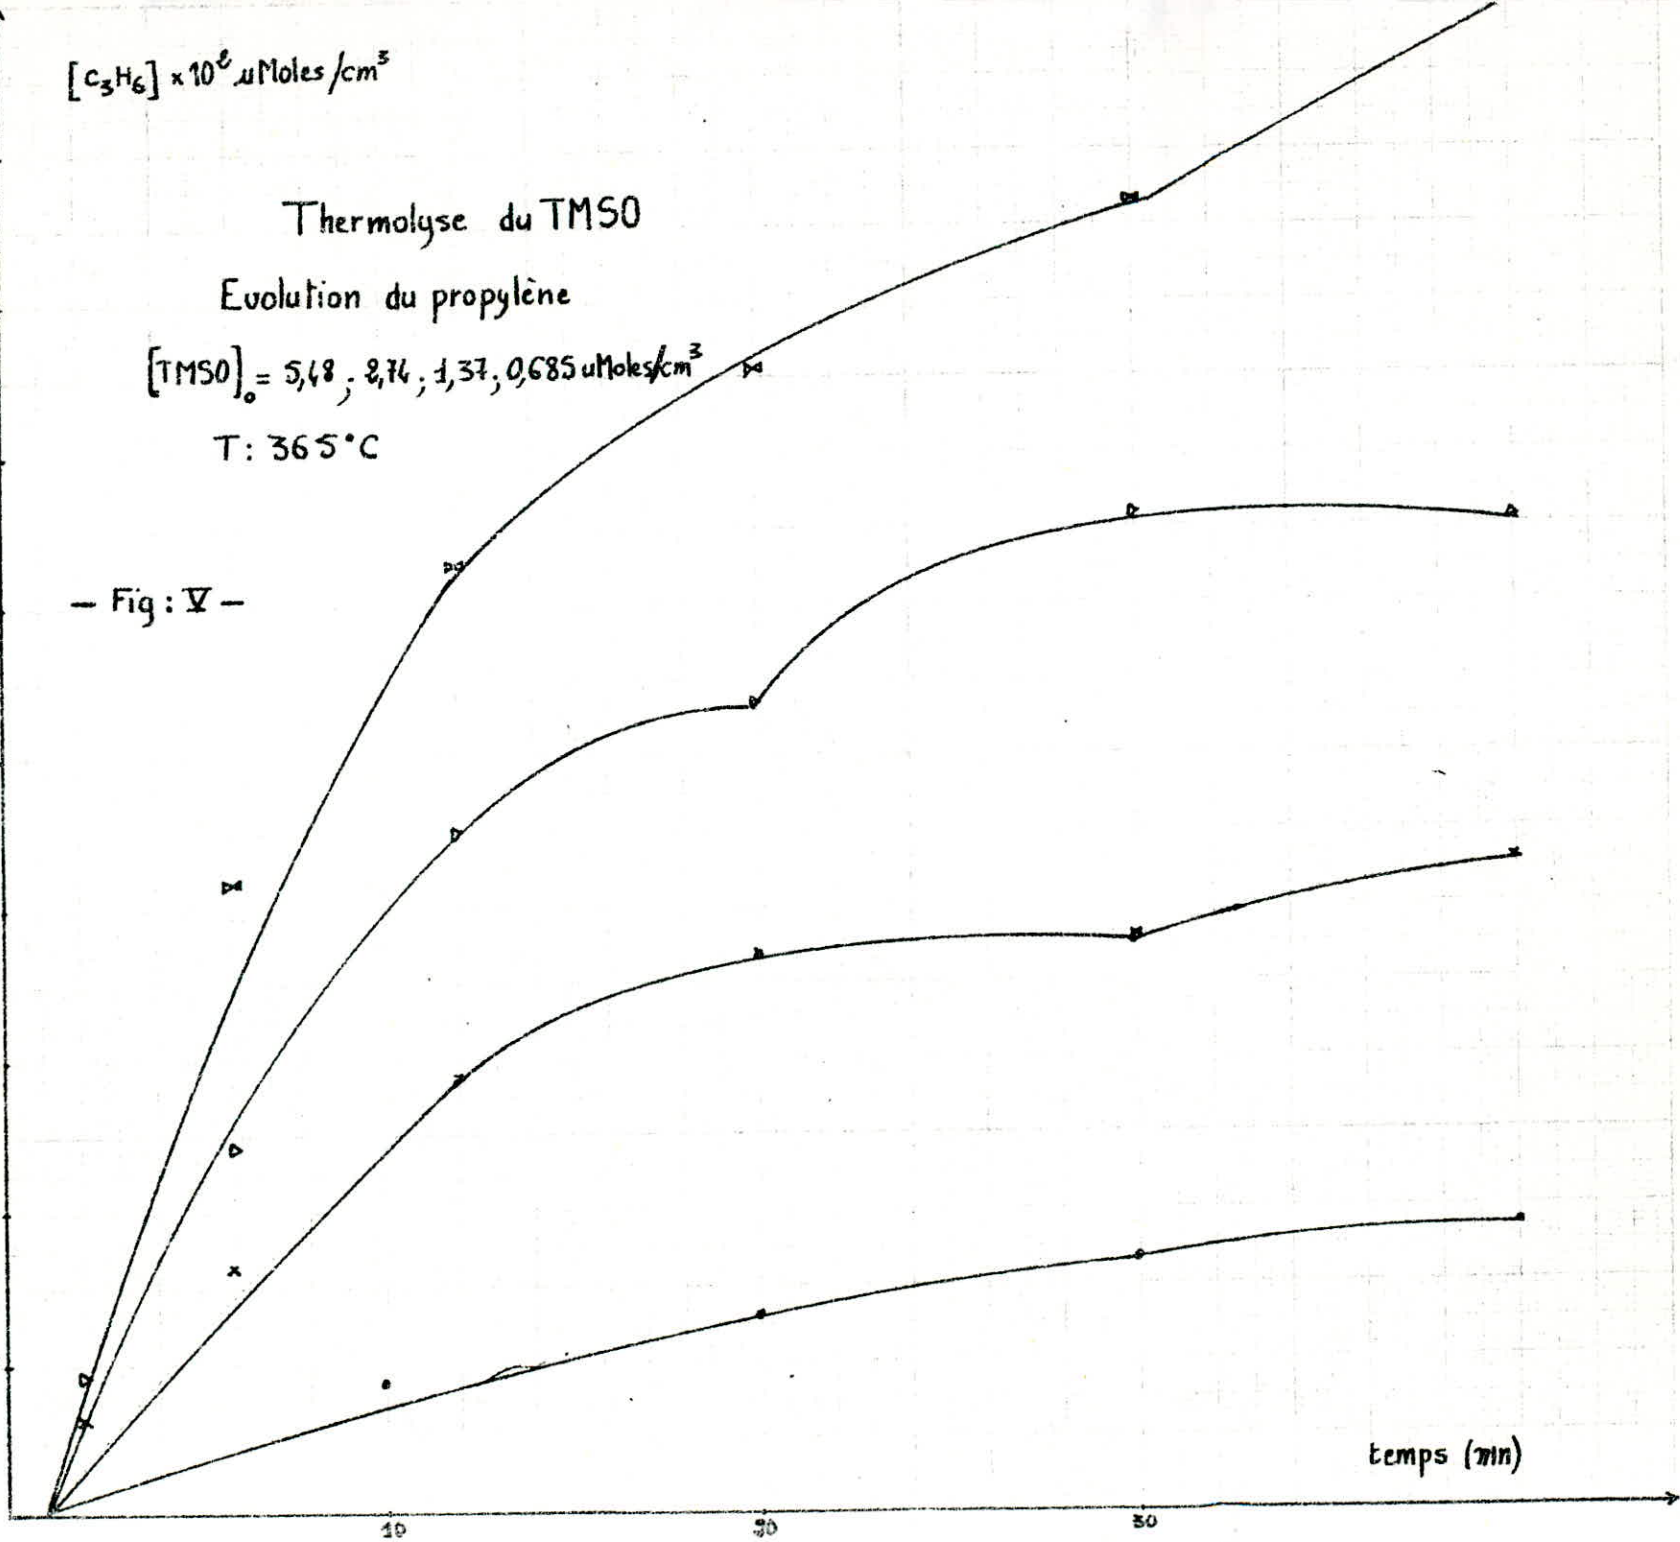 [C₃H₆] × 10² uMoles/cm³
Thermolyse du TMSO
Evolution du propylène
[TMSO]₀ = 5,48 ; 2,74 ; 1,37 ; 0,685 uMoles/cm³
T: 365°C
— Fig : V —
temps (mn)
10 20 30